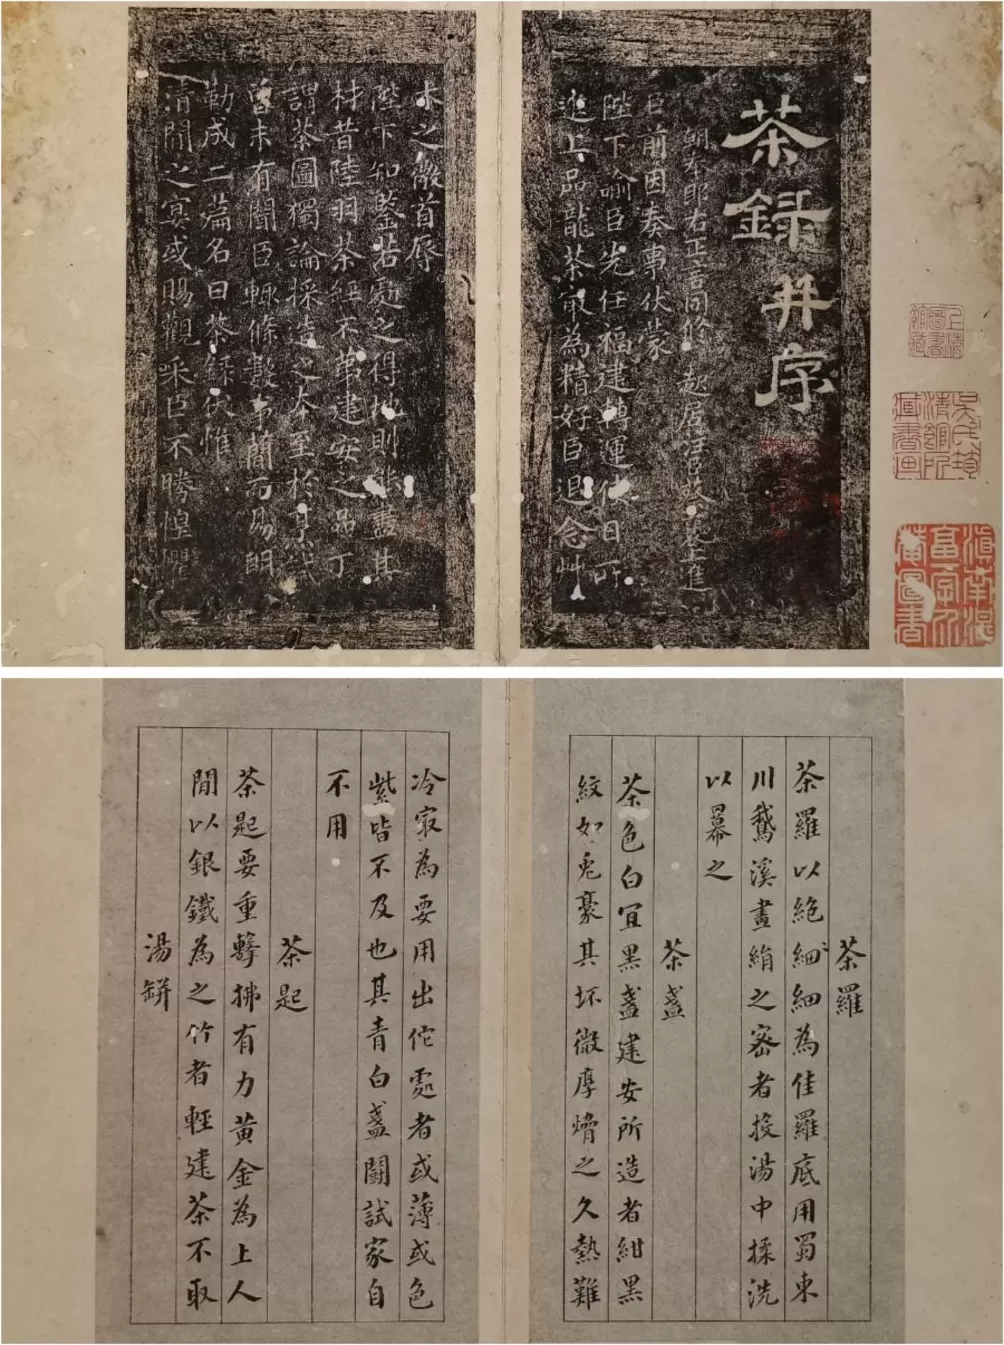 上海圖書館藏
吳氏筠清館所藏書畫
茶錄并序
朝奉郎右正言同脩起居注臣蔡襄上進
臣前因奏事伏蒙
陛下諭臣先任福建轉運使日所
進上品龍茶冣為精好臣退念艸
木之微首辱
陛下知鑒若處之得地則能盡其
材昔陸羽茶經不第建安之品丁
謂茶圖獨論採造之本至於烹試
曾未有聞臣輒條數事簡而易明
勒成二篇名曰茶錄伏惟
清閒之宴或賜觀采臣不勝惶懼
茶羅
茶羅以絕細細為佳羅底用蜀東
川鵞溪畫絹之密者投湯中揉洗
以冪之
茶盞
茶色白宜黑盞建安所造者紺黑
紋如兔豪其坯微厚熁之久熱難
冷冣為要用出佗處者或薄或色
紫皆不及也其青白盞鬭試家自
不用
茶匙
茶匙要重擊拂有力黃金為上人
閒以銀鐵為之竹者輕建茶不取
湯缾